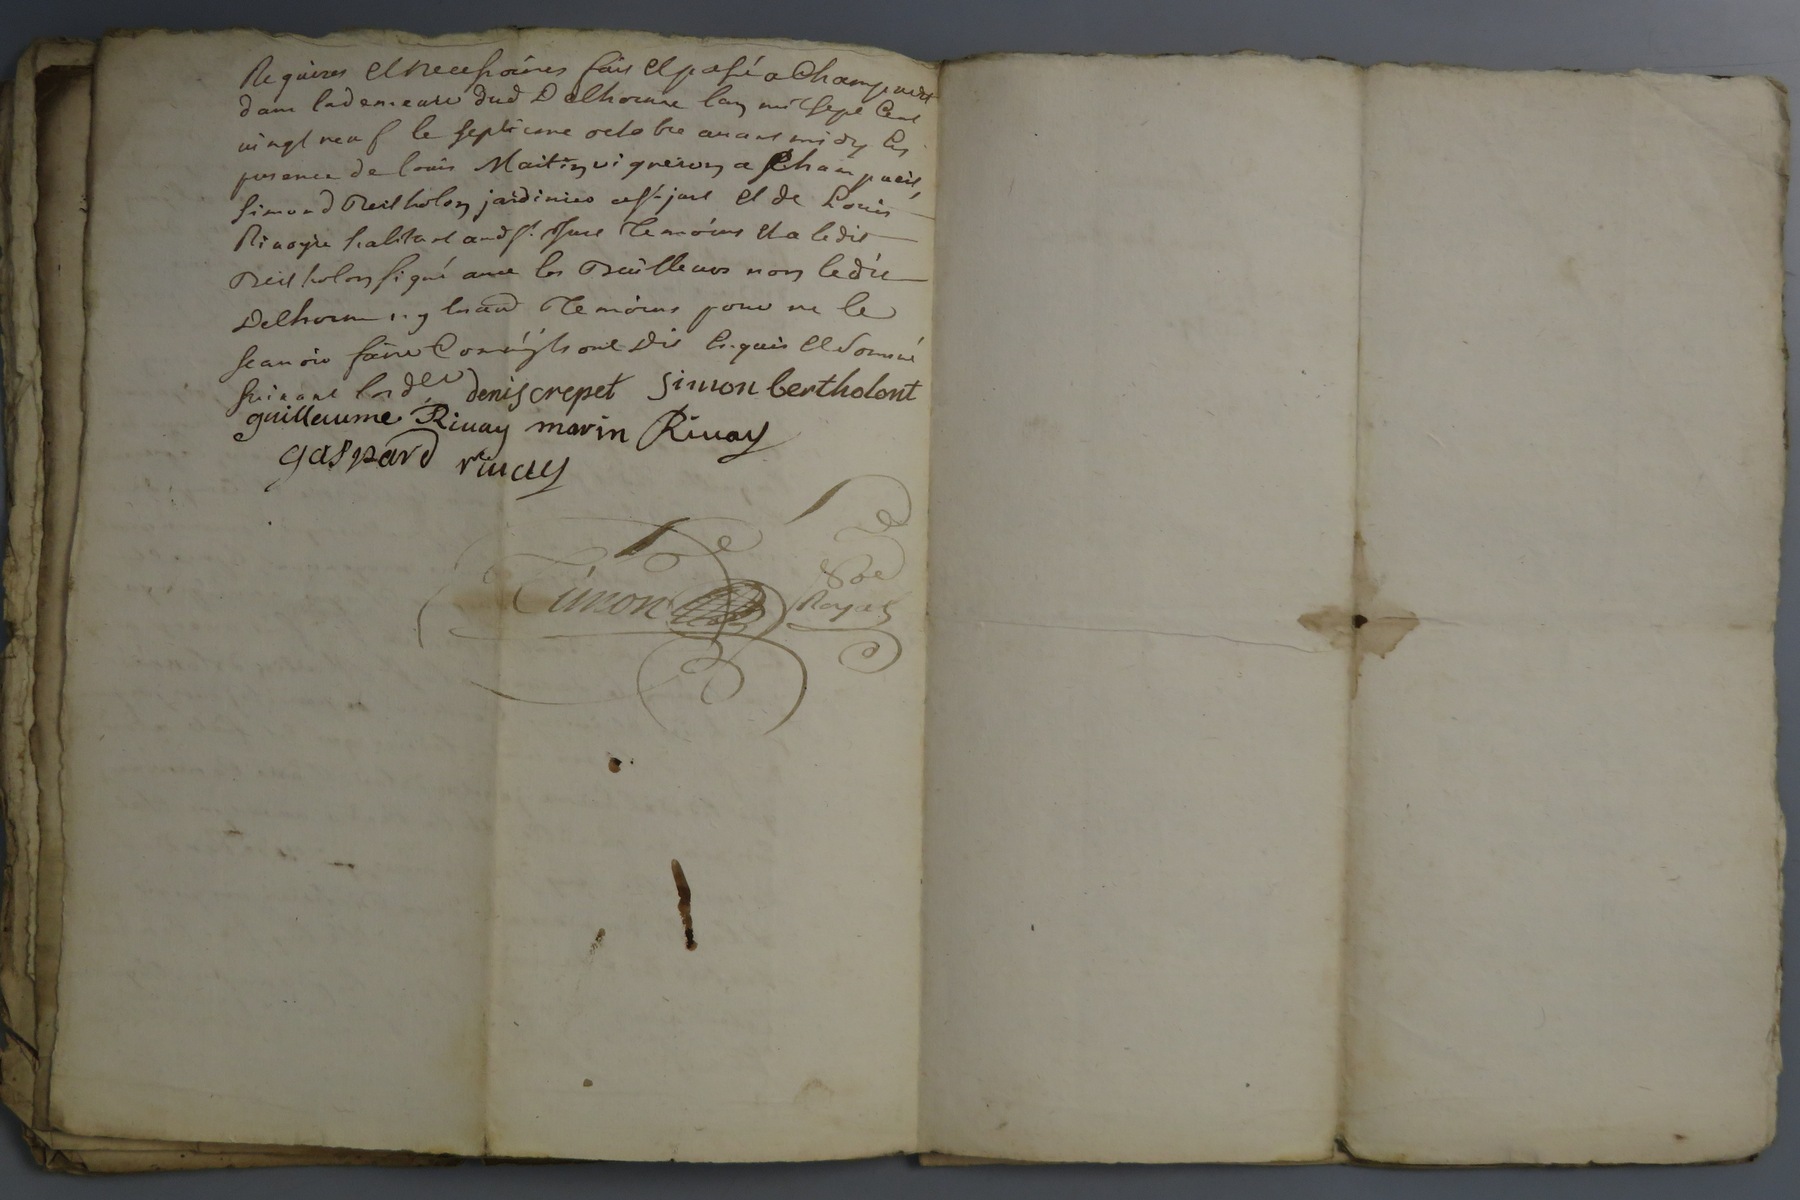 Requises et necessoires fais et passé a Champvert
dans la demeure dud Delhorme lan mil sept Cent
vingt neuf le septieme octobre avant midy En
presence de louis Martin vigneron a Champvert,
Simond Bertholon jardinier a st. just et de Louis
Rivoyre habitant aud st. Just Temoins et a ledit
Bertholon signé avec les Bailleurs non ledit
Delhorme ny lautre Temoins pour ne le
scavoir faire Comm'ils ont dit Enquis et sommé
suivant lord.er denis crepet Simon bertholont
guillaume Rivay marin Rivay
gaspard rivay
Simon
Royal